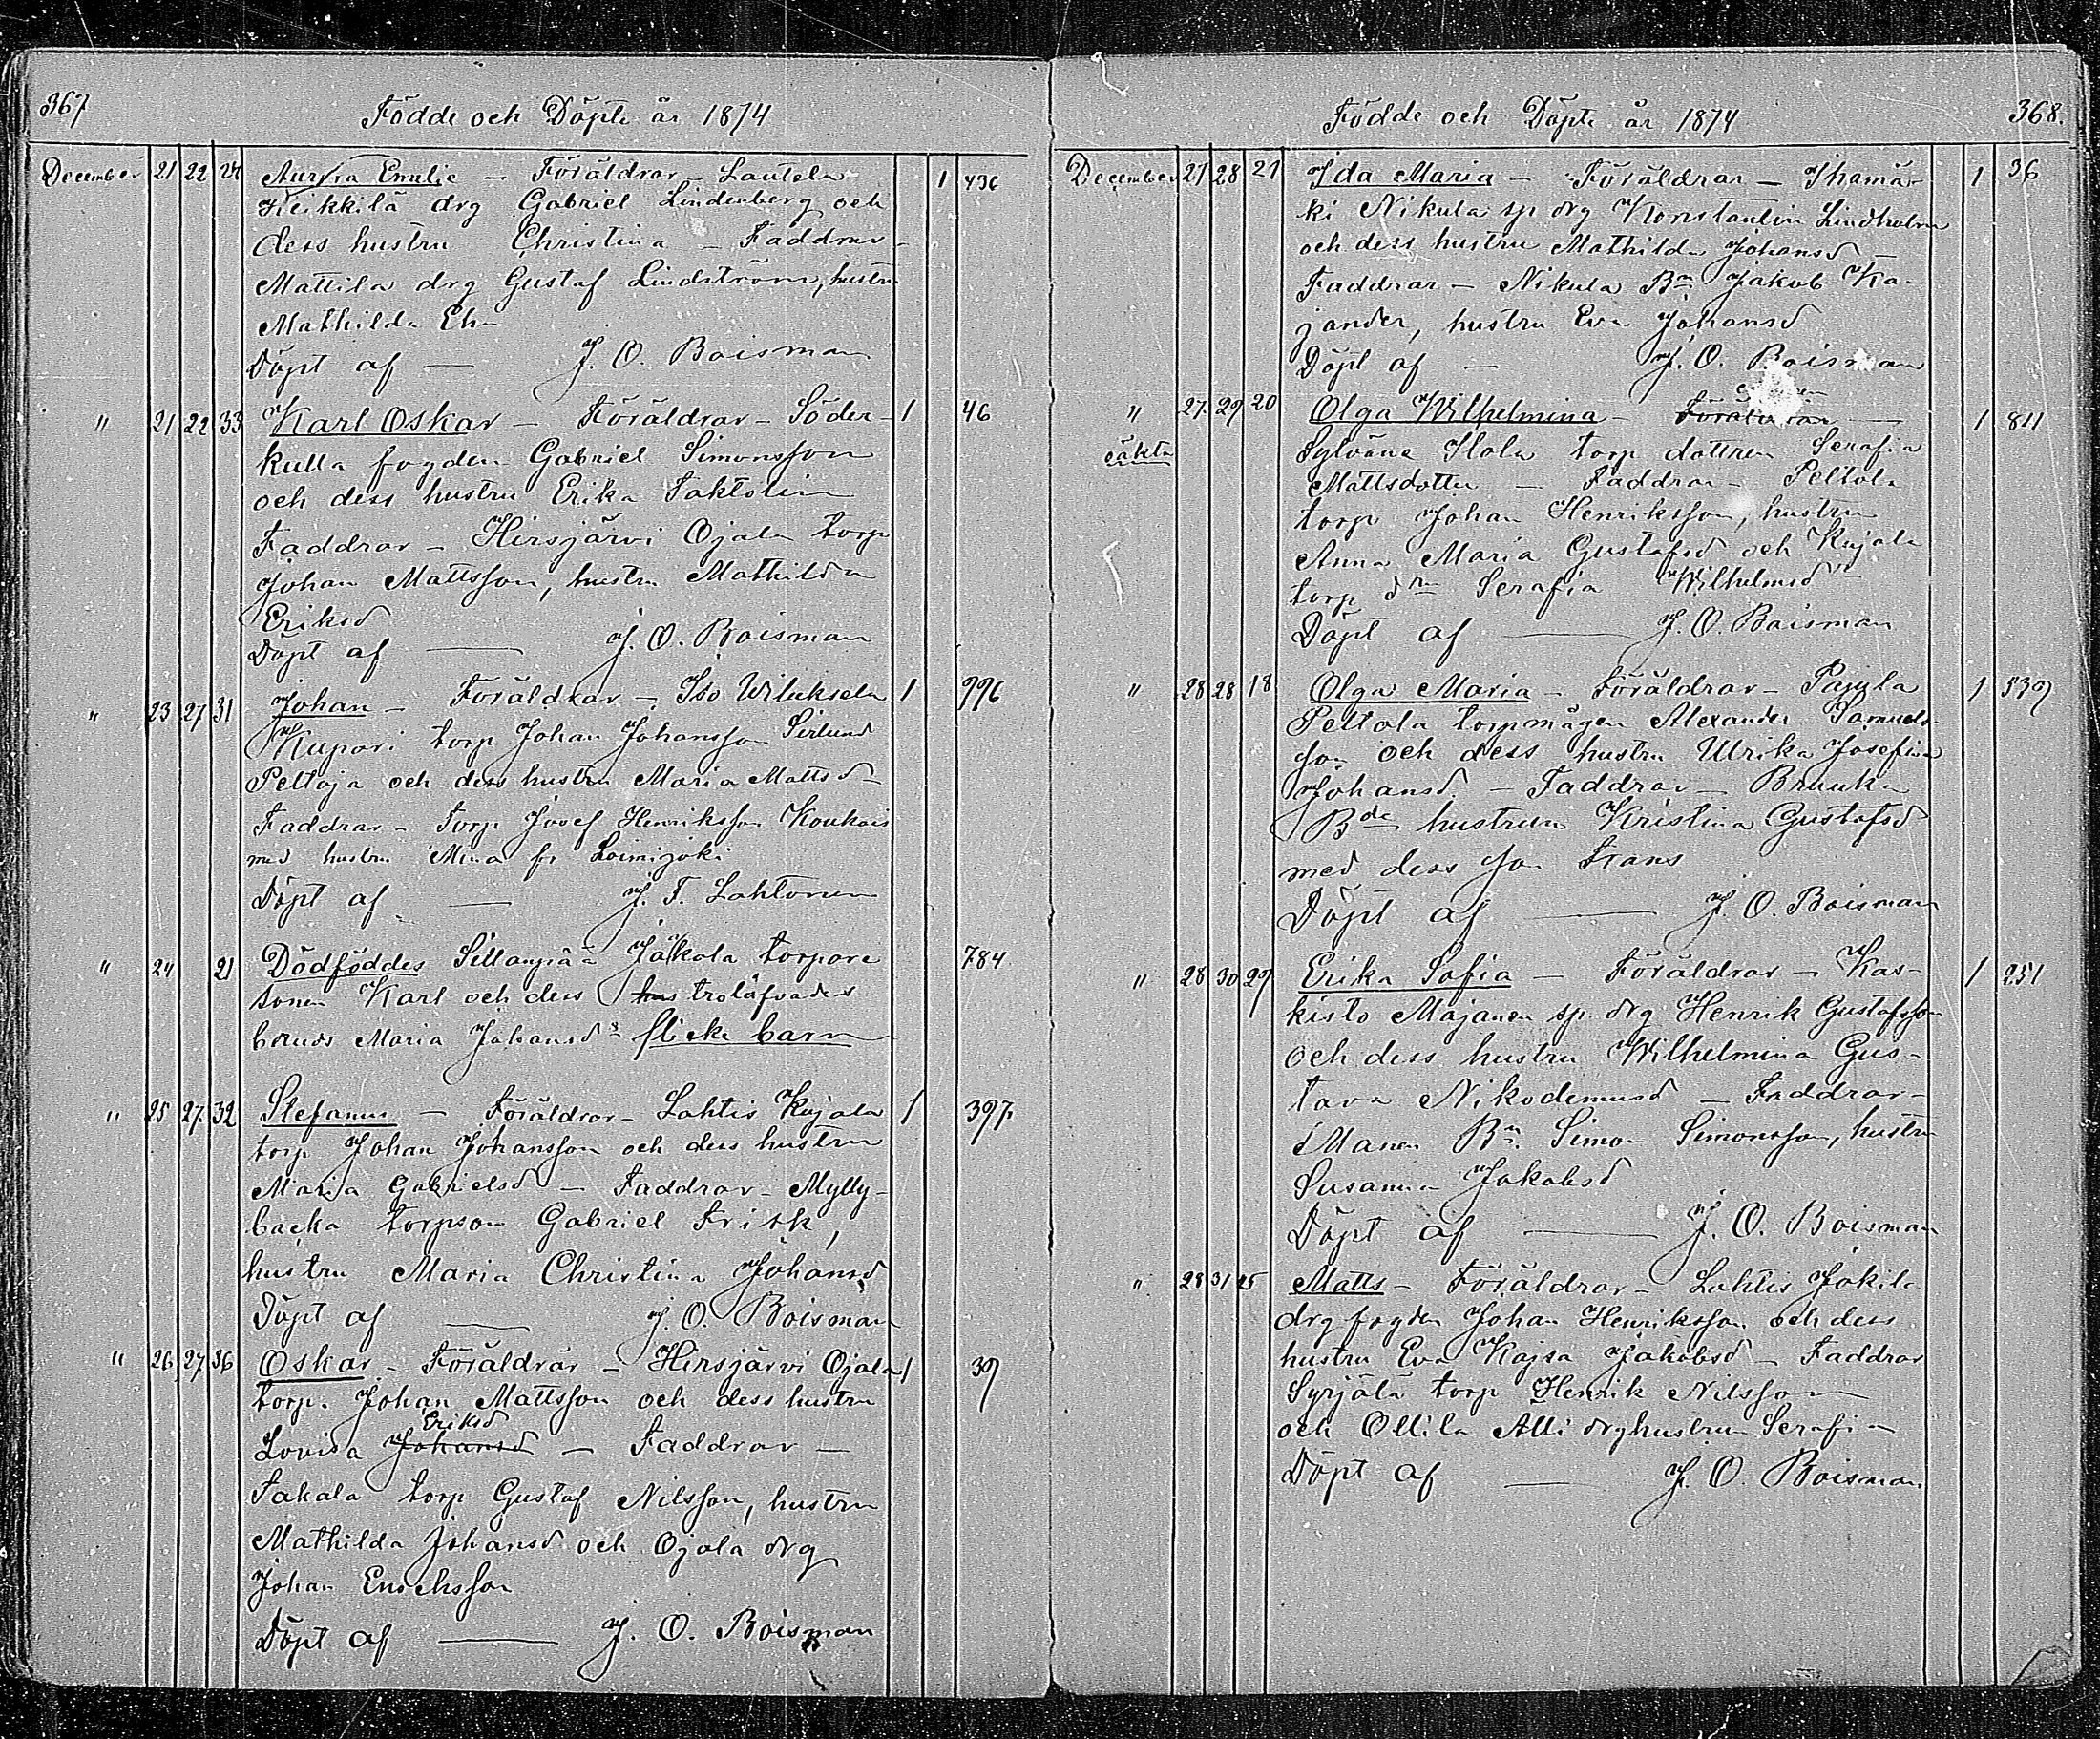 367
Födde och Döpte år 1874
December 21 22 24 Aurora Emilie — Föräldrar — Lautela 1 436
Heikkilä drg Gabriel Lindenberg och
dess hustru Christina — Faddrar —
Mattila drg Gustaf Lindström, hustru
Mathilda
Döpt af — J. O. Boisman
" 21 22 33 Karl Oskar — Föräldrar — Söder- 1 46
kulla fogden Gabriel Simonsson
och dess hustru Erika Taktolin
Faddrar — Hirsjärvi Ojala torp
Johan Mattsson, hustru Mathilda
Eriksd
Döpt af — J. O. Boisman
" 23 27 31 Johan — Föräldrar — Iso Wiluksela 1 996
Kupari torp Johan Johansson
Peltoja och dess hustru Maria Mattsd —
Faddrar — torp Josef Henriksson Koukois
med hustru Mina fr Loimijoki
Döpt af — J. F. Lahtonen
" 24 21 Dödföddes Sillanpää Jaakola torpare 784
sonen Karl och dess hus trolofvades
Maria Johansds flicke barn
" 25 27. 32 Stefanus — Föräldrar — Lahtis Kujala 1 397
torp Johan Johansson och dess hustru
Maria Gabrielsd — Faddrar — Mylly-
backa torpson Gabriel Frisk,
hustru Maria Christina Johansd
Döpt af — J. O. Boisman
" 26 27 36 Oskar — Föräldrar — Hirsjärvi Ojala 1 39
torp. Johan Mattsson och dess hustru
Eriksd
Lovisa Johansd — Faddrar —
Takala torp Gustaf Nilsson, hustru
Mathilda Johansd och Ojala drg
Johan Enochsson
Döpt af — J. O. Boisman
368.
Födde och Döpte år 1874
December 27 28 27 Ida Maria — Föräldrar — Ihamä- 1 36
ki Nikula sp drg Konstantin Lindholm
och dess hustru Mathilda Johansd —
Faddrar — Nikula Bn Jakob Ka-
jander, hustru Eva Johansd
Döpt af — J. O. Boisman
" 27. 29 20 Olga Wilhelmina — Föräldrar — 1 811
oäkta Sylvänä Ilola torp dottren Serafia
Mattsdotter — Faddrar — Peltola
torp Johan Henriksson, hustru
Anna Maria Gustafsd och Kujala
torp drn Serafia Wilhelmsd —
Döpt af — J. O. Boisman
" 28 28 18 Olga Maria — Föräldrar — Pajula 1 539
Peltola torpmågen Alexander Samuels-
son och dess hustru Ulrika Josefina
Johansd — Faddrar — Bruuka
Bde hustrun Kristina Gustafsd
med dess son Frans
Döpt af — J. O. Boisman
" 28 30 29 Erika Sofia — Föräldrar — Kas- 1 251
kisto Majanen sp. drg Henrik Gustafsson
och dess hustru Wilhelmina Gus-
tava Nikodemusd — Faddrar —
Manen Bn Simon Simonsson, hustru
Susanna Jakobsd
Döpt af — J. O. Boisman
" 28 31 25 Matts — Föräldrar — Lahtis Jokila
drg fogden Johan Henriksson och dess
hustru Eva Kajsa Jakobsd — Faddrar
Syrjälä torp Henrik Nilsson
och Ollila Alli drghustrun Serafia
Döpt af — J. O. Boisman